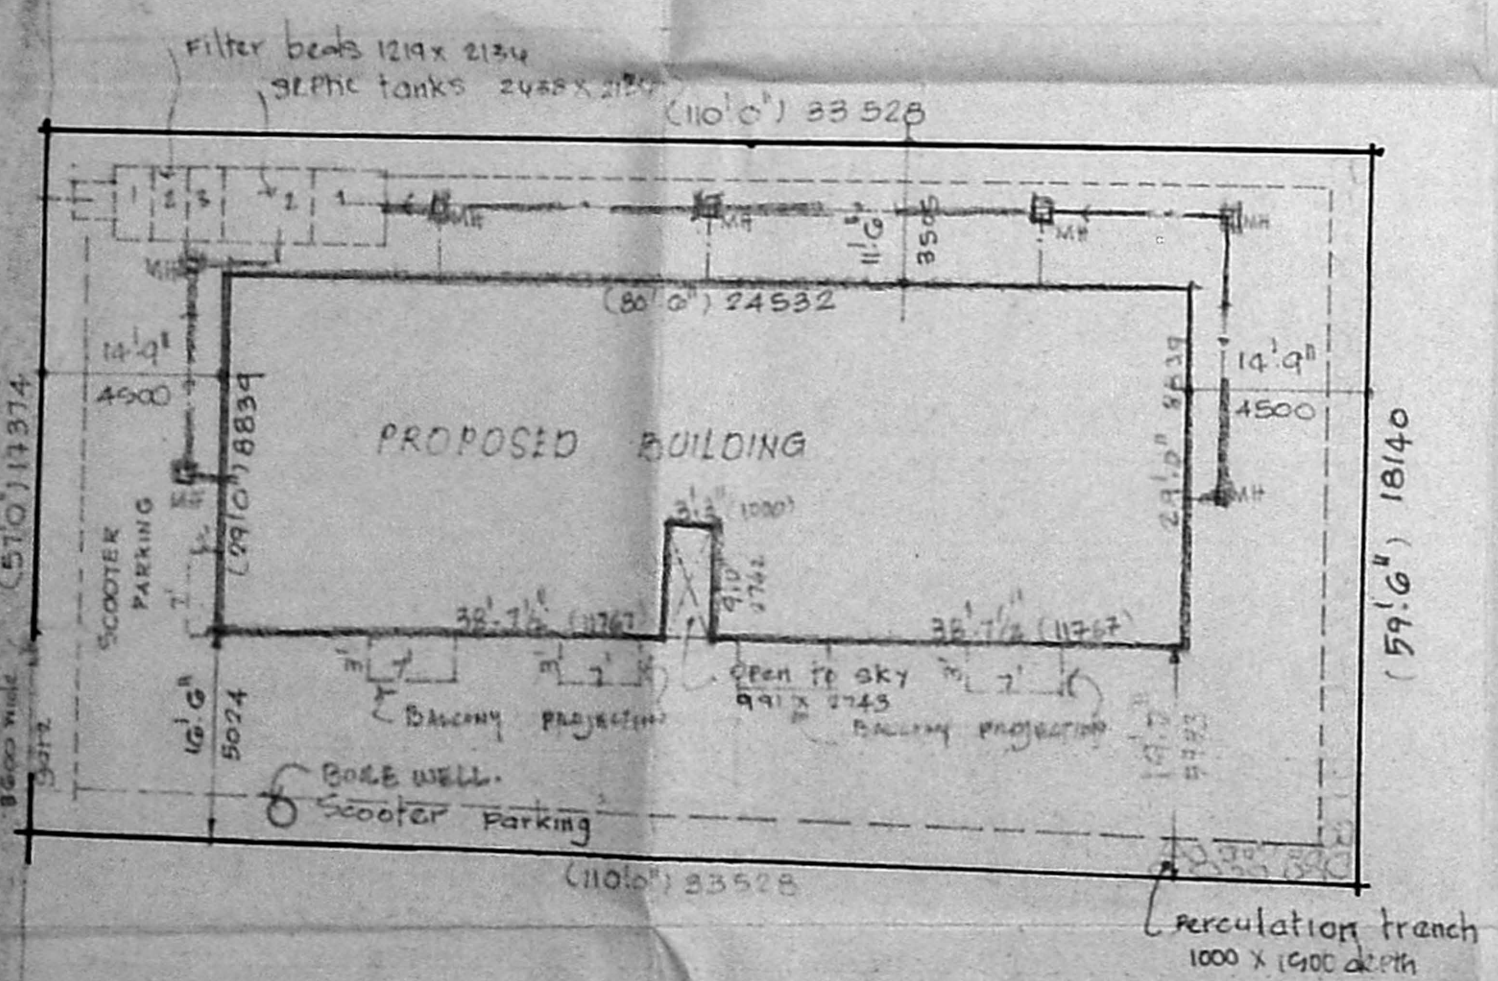 Filter beds 1219 x 2134
septic tanks 2438 x
(110'0") 33 528
1 2 3 2 1
MH
MH
MH
MH
MH
11'6"
3505
(80'6") 24532
14'9"
4500
(57'0") 17374
(29'0") 8839
PROPOSED BUILDING
29'0" 8839
14'9"
4500
MH
(59'6") 18140
MH
SCOOTER
PARKING
3'3" (1000)
9'0"
2742
7'
38'-7½" (11767)
38'-7½" (11767)
3' 7'
3' 7'
3' 7'
open to sky
991 x 2743
BALCONY PROJECTION
BALCONY PROJECTION
16'6"
5024
3600 wide
gate
BORE WELL.
Scooter Parking
(110'0") 33528
Perculation trench
1000 x 1500 depth